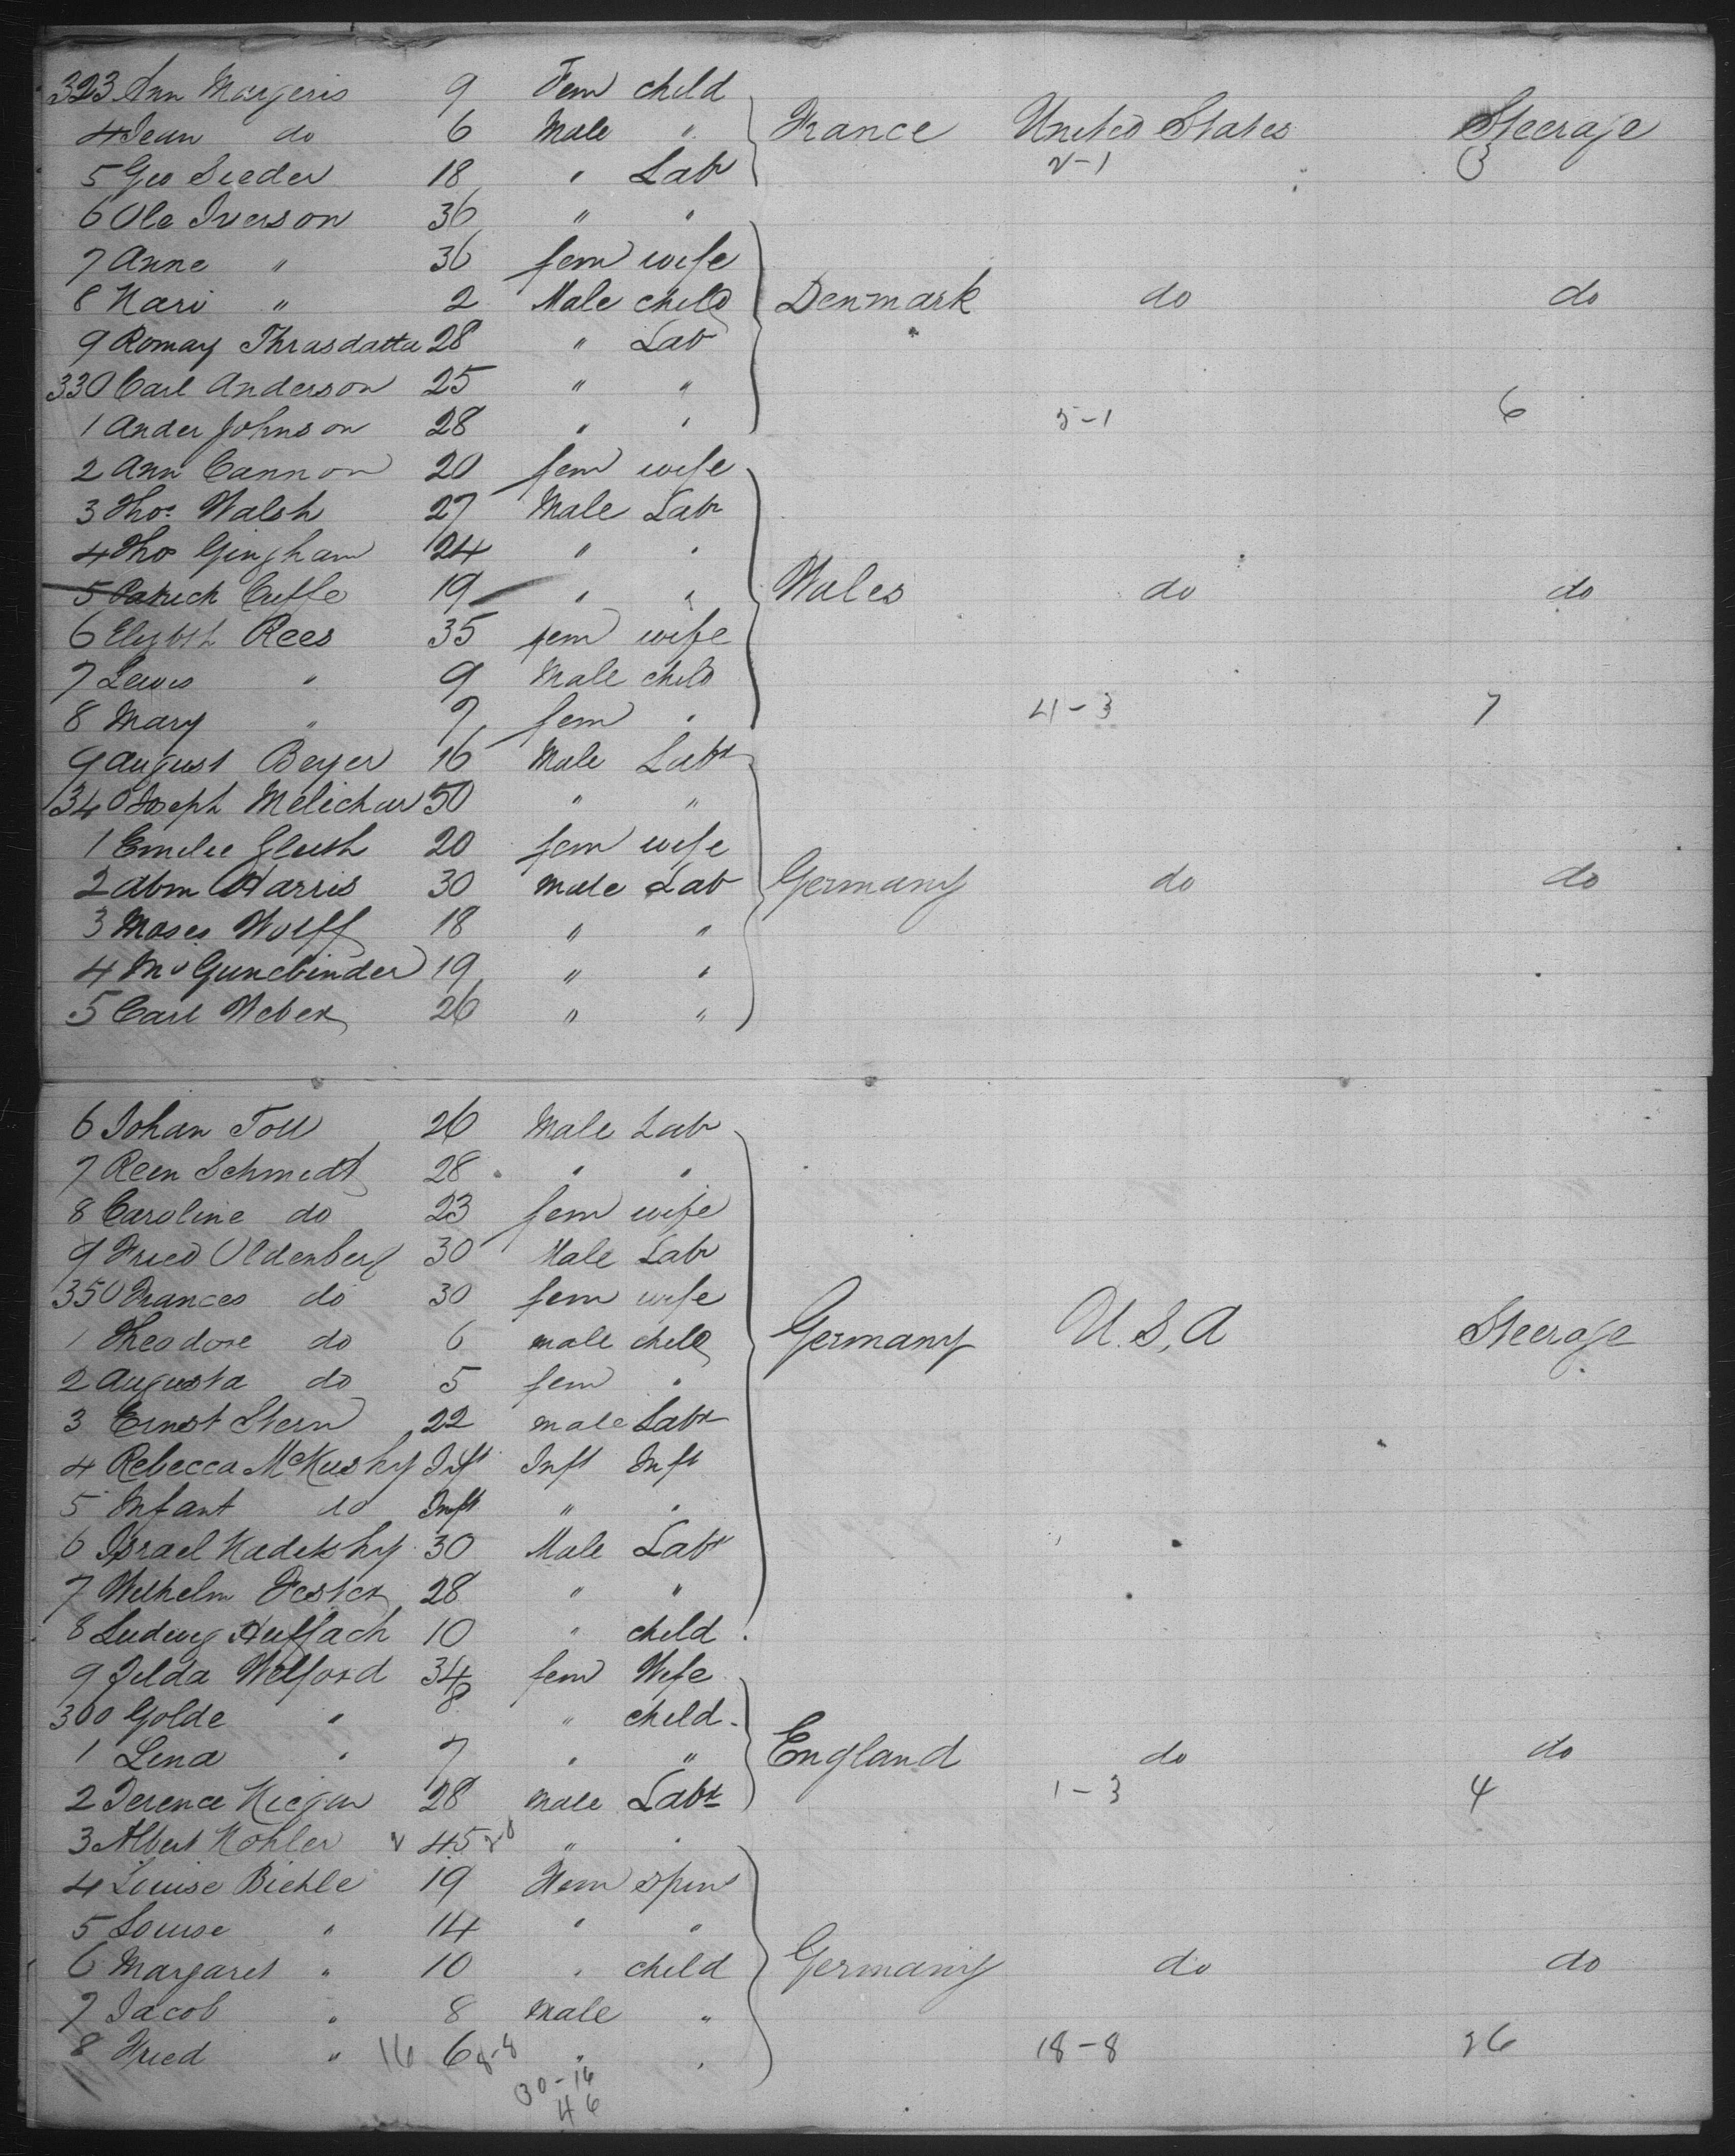 323 Ann Margeris 9 Fem child
4 Jean do 6 Male " France United States Steerage
5 Geo Sieder 18 " Labr 2-1 3
6 Ole Iverson 36 " "
7 Anne " 36 fem wife
8 Kari " 2 Male child Denmark do do
9 Romay Thrasdatta 28 " Lab
330 Carl Anderson 25 " "
1 Ander Johnson 28 " " 5-1 6
2 Ann Cannon 20 fem wife
3 Thos Walsh 27 Male Labr
4 Tho Gingham 24 " "
5 Patrick Cuffe 19 " " Wales do do
6 Elizbth Rees 35 fem wife
7 Lewis " 9 Male child
8 Mary " 7 fem " 4-3 7
9 August Beyer 16 Male Labr
340 Joseph Melichar 50 " "
1 Emilie Gleish 20 fem wife
2 Abm Harris 30 male Lab Germany do do
3 Moses Wolff 18 " "
4 Gunebinder 19 " "
5 Carl Weber 26 " "
6 Johan Toll 26 Male Labr
7 Reen Schmidt 28 " "
8 Caroline do 23 fem wife
9 Fried Oldenberg 30 Male Labr
350 Frances do 30 fem wife
1 Theodore do 6 male child Germany U.S,A Steerage
2 Augusta do 5 fem "
3 Ernst Stern 22 male Labr
4 Rebecca McKushy Inft Inft Inft
5 Infant do Inft " "
6 Israel Kadekshy 30 Male Labr
7 Wilhelm Fester 28 " "
8 Ludwig Huffach 10 " child
9 Jelda Welford 34 fem Wife
360 Golde " 8 " child
1 Lena " 7 " " England do do
2 Terence Kiegan 28 male Labr 1-3 4
3 Albert Kohler 45 " "
4 Louise Biehle 19 Fem spin
5 Louise " 14 " "
6 Margaret " 10 " child Germany do do
7 Jacob " 8 Male "
8 Fried " 16 6 8-8 " " 18-8 26
30-16
46